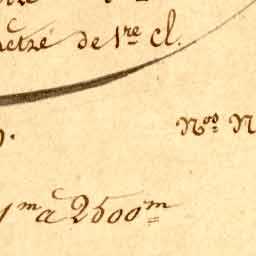 métré de 1re cl.
Nos N
1m à 2500m